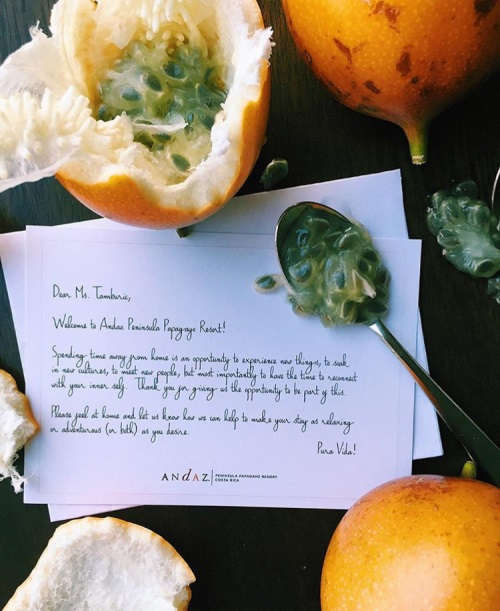 Dear Ms. Tamburic,
Welcome to Andaz Peninsula Papagayo Resort!
Spending time away from home is an opportunity to experience new things, to soak
in new cultures, to meet new people, but most importantly to have the time to reconnect
with your inner self. Thank you for giving us the opportunity to be part of this.
Please feel at home and let us know how we can help to make your stay as relaxing
or adventurous (or both) as you desire.
Pura Vida!
ANdAZ. PENINSULA PAPAGAYO RESORT
COSTA RICA